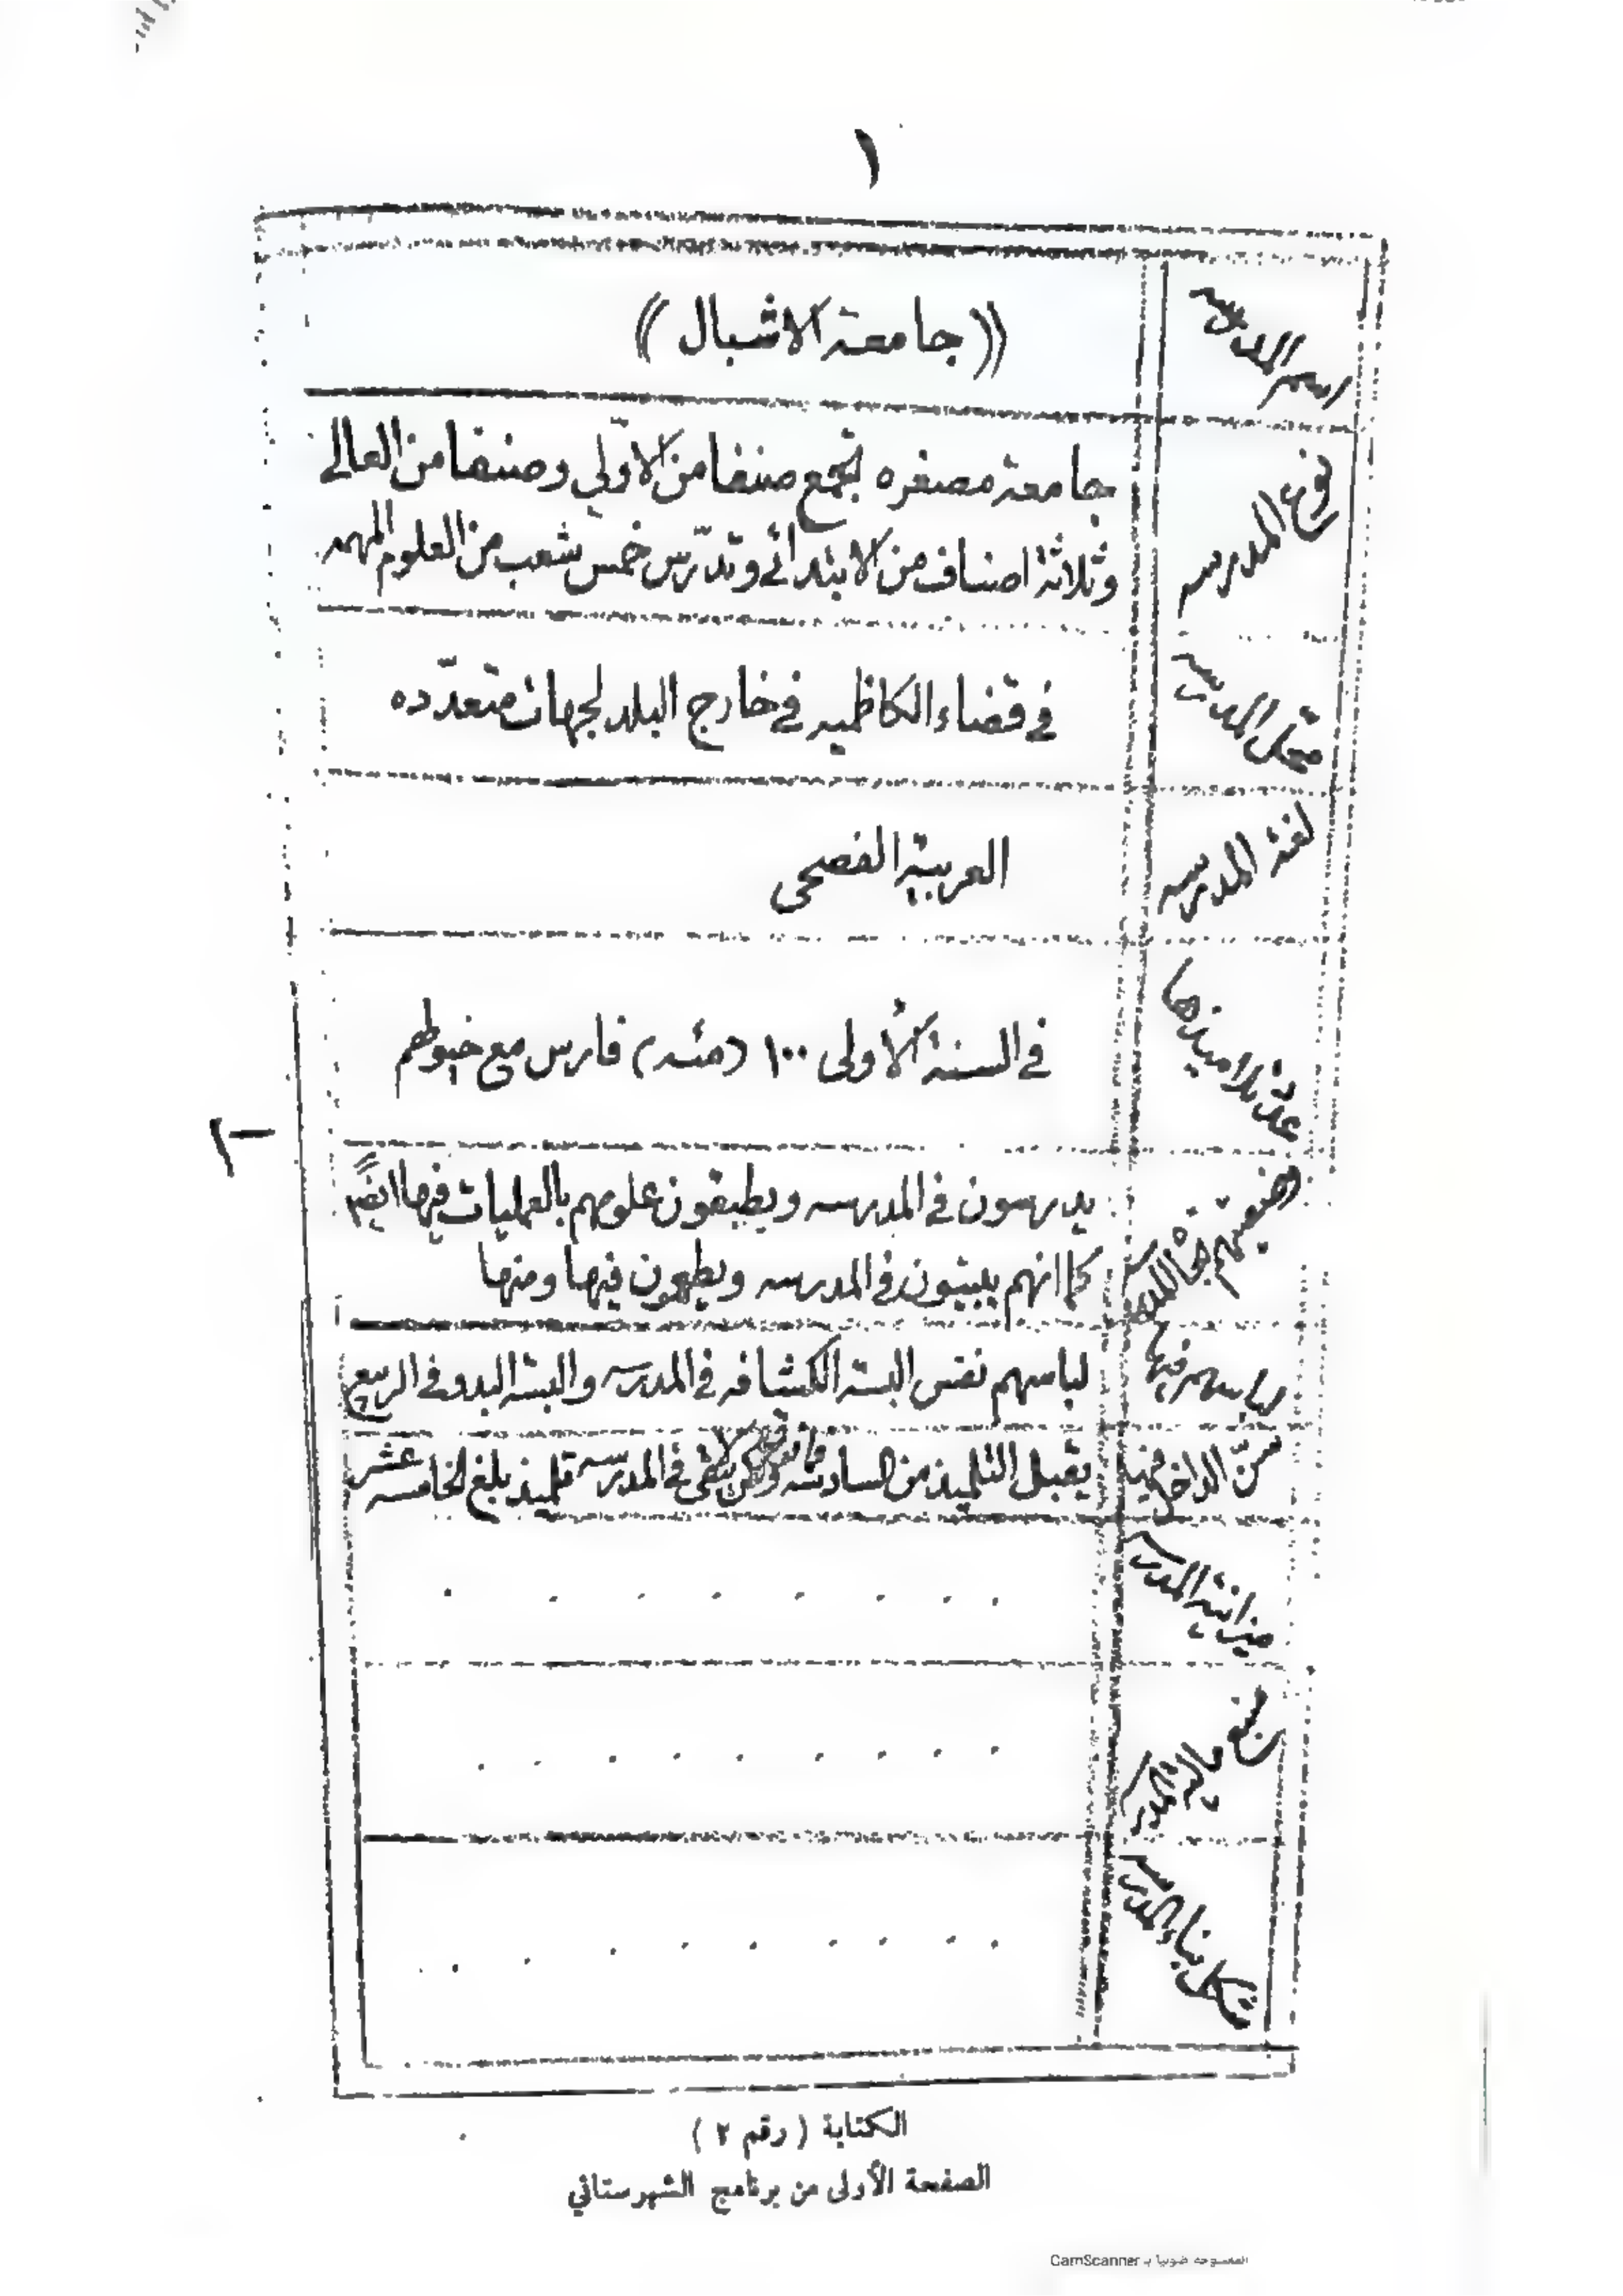 ١
اسم المدرسه
(( جامعة الاشبال ))
نوع المدرسه
جامعة مصغره تجمع صنفا من الاوّلي وصنفا من العالي
وثلاثة اصناف من الابتدائي وتدرّس خمس شعب من العلوم المهمه
محل المدرسه
في قضاء الكاظميه في خارج البلد لجهات متعدّده
لغة المدرسه
العربية الفصحى
عدة تلاميذها
في السنة الأولى ١٠٠ (مئه) فارس مع خيوطهم
وضعيتهم في المدرسه
يدرسون في المدرسه ويطبقون علومهم بالعمليات فيها ايضًا
كما انهم يبيتون في المدرسه ويطهون فيها ومنها
لباسهم فيها
لباسهم نفس البسة الكشافه في المدرسه والبسة البدو في الربيع
سنّ الداخل فيها
يقبل التلميذ من السادسة فما فوق ولا يبقى في المدرسه تلميذ بلغ الخامسه عشر
ميزانية المدرسه
منبع مالية المدرسه
شكل بناء المدرسه
الكتابة ( رقم ٢ )
الصفحة الأولى من برنامج الشهرستاني
الممسوحة ضوئيا بـ CamScanner